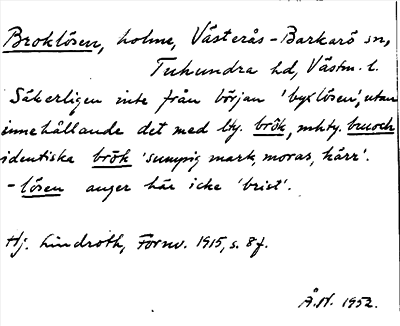 Broklösen, holme, Västerås-Barkarö sn,
Tuhundra hd, Västm. l.
Säkerligen inte från början 'byxlösen', utan
innehållande det med lty. brōk, mhty. bruoch
identiska brōk 'sumpig mark, moras, kärr'.
-lösen anger här icke 'brist'.
Hj. Lindroth, Fornv. 1915, s. 8 f.
Å.N. 1952.